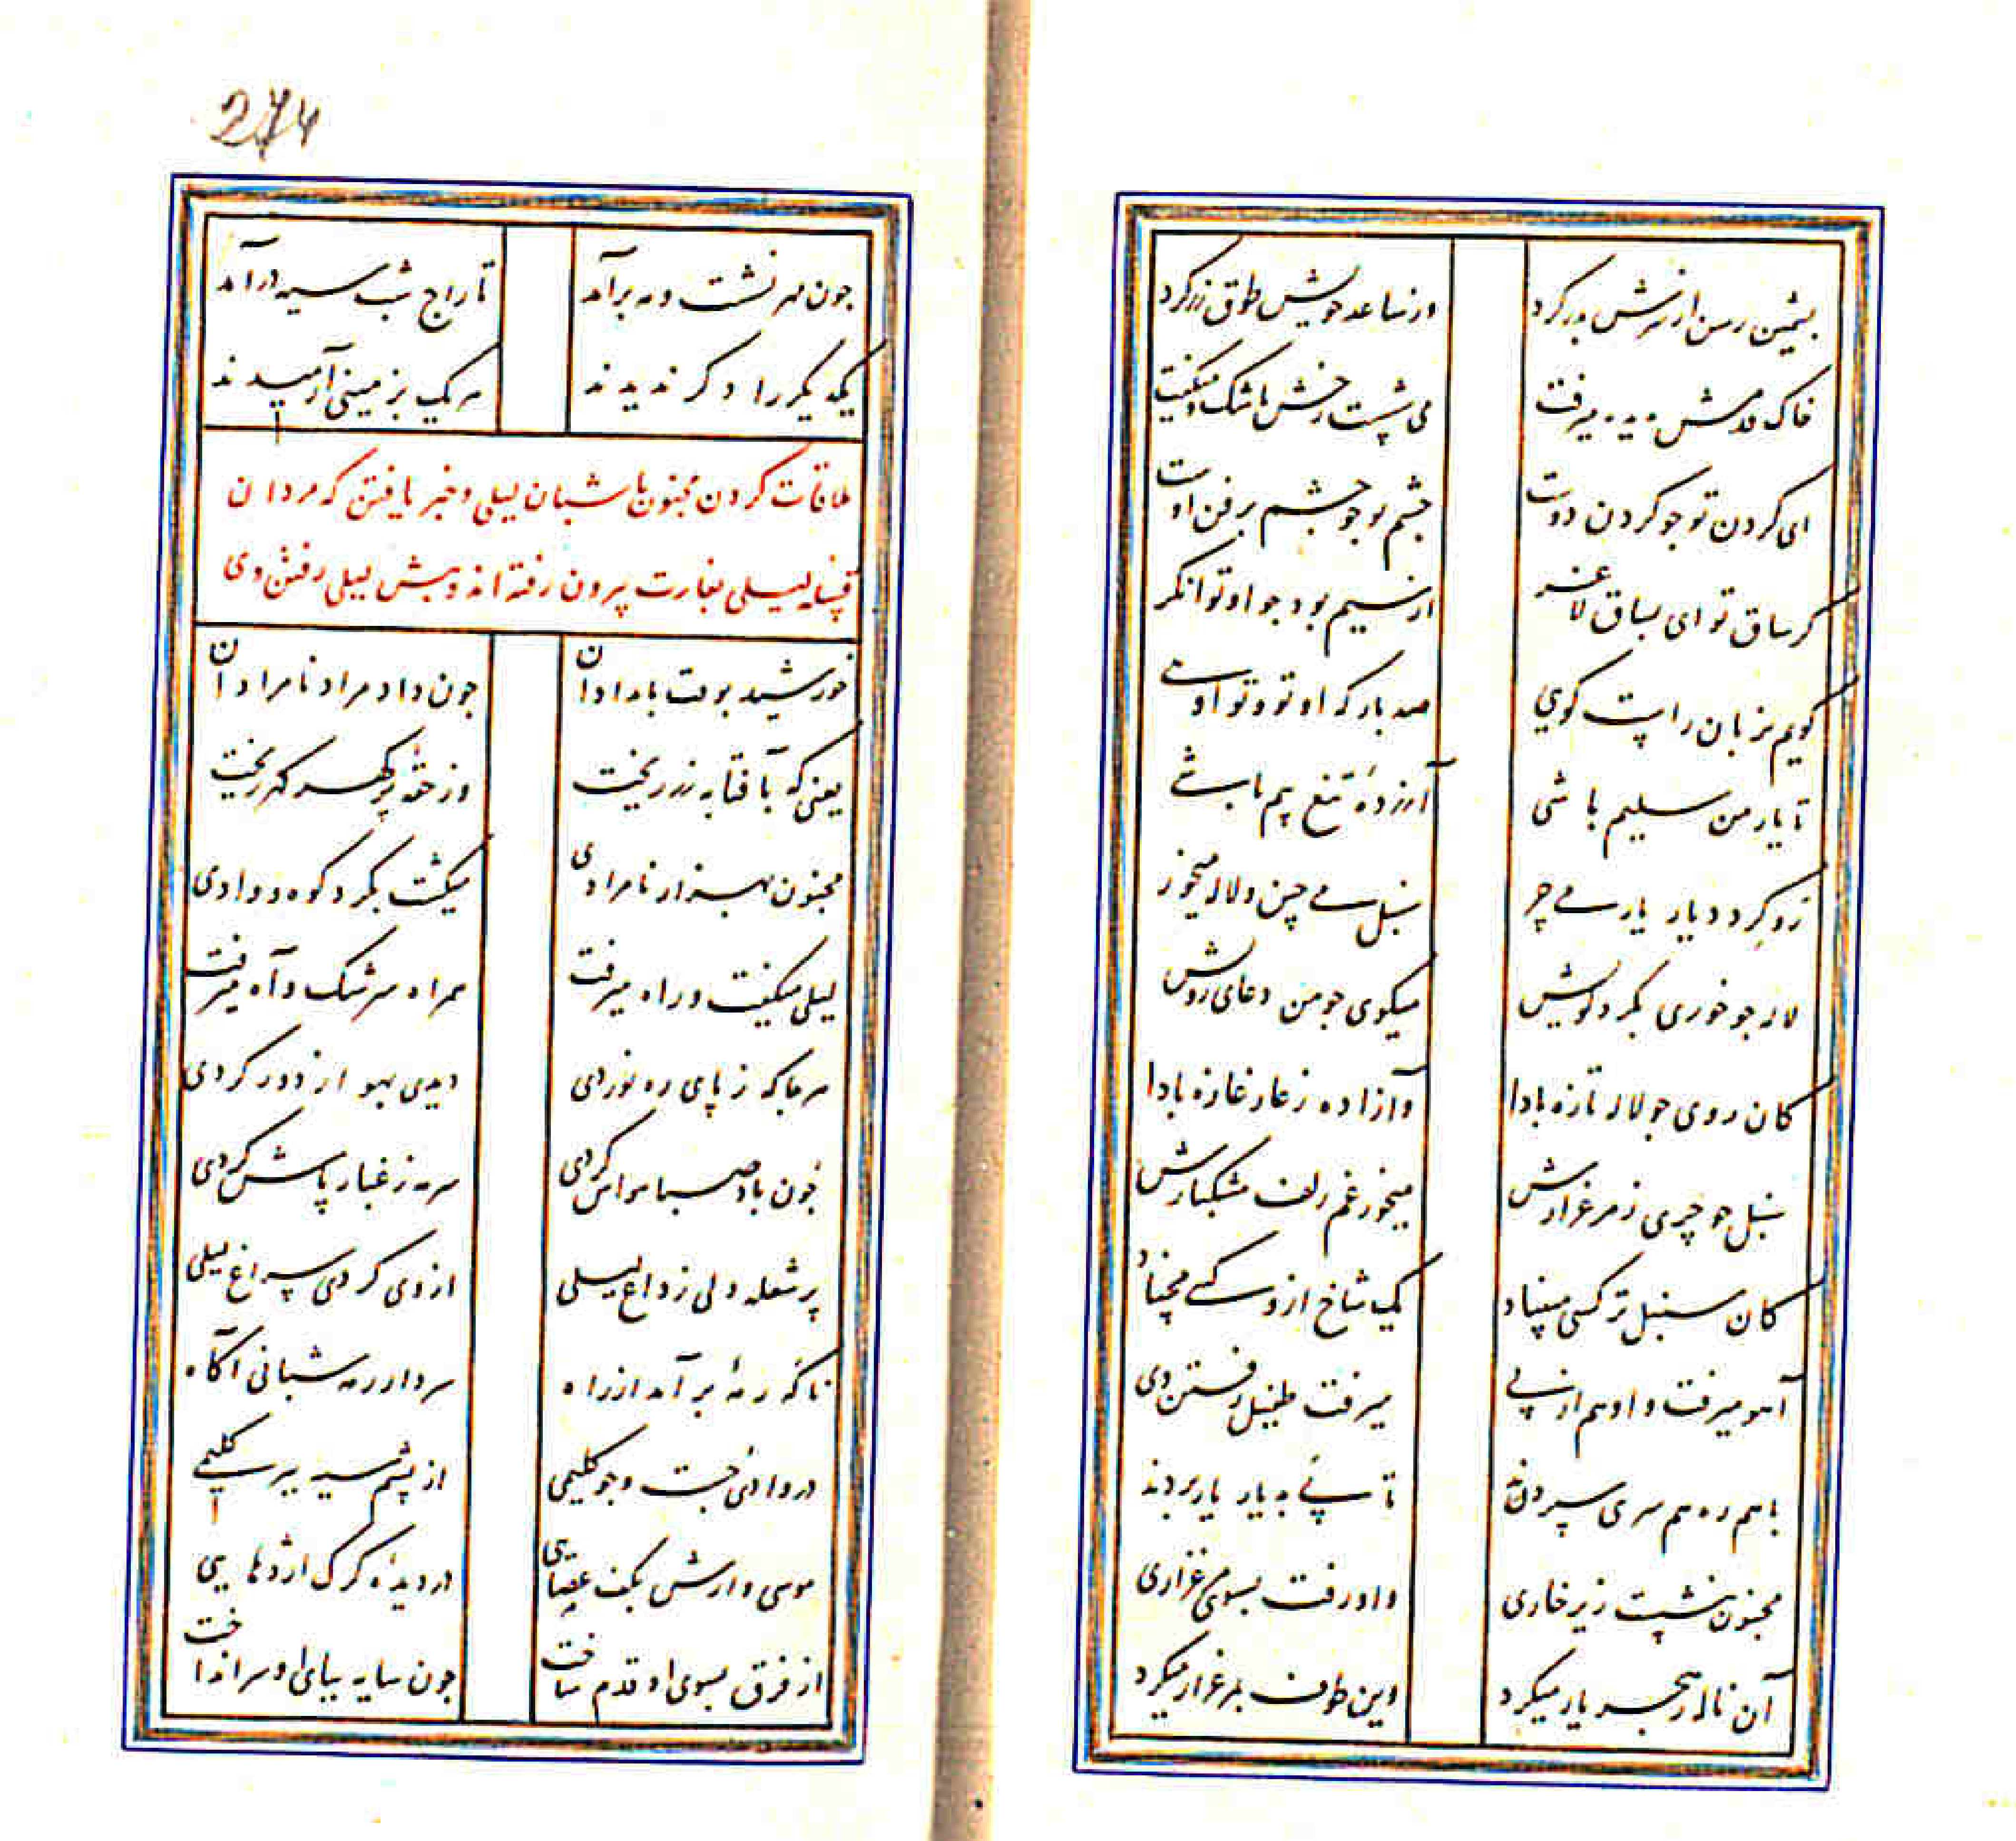 پشمین رسن از سرش بدر کرد وز ساعد خویش طوق زر کرد
خاک قدمش بدیده میرفت می شست رخش باشک و میگفت
ای کردن تو جو کردن دوست جشم تو جو جشم پر فن اوست
کر ساق تو ای بساق لاغر از سیم بود جو او توانکر
کویم بزبان راست کویی صد بار که او تو و تو اویی
تا یار من سلیم باشی آزردهٔ تیغ بیم باشی
رو کرد دیار یار می جر سنبل می چین و لاله میخور
لاله جو خوری بکرد کویش میکوی جو من دعای رویش
کان روی جو لاله تازه بادا و آزاده ز عار غازه بادا
سنبل جو چری ز مرغزارش میخور غم زلف مشکبارش
کان سنبل تر کسی مبیناد یک شاخ ازو کسی مچیناد
آهو میرفت و او هم از پی میرفت طفیل رفتن وی
با هم ره هم سری سپردند تا پی به دیار یار بردند
مجنون بنشست زیر خاری و او رفت بسوی مرغزاری
آن ناله ز هجر یار میکرد وین طوف بمرغزار میکرد
274
جون مهر نشست و مه برآمد تاراج شب سیه درآمد
یکدیکر را دکر ندیدند هر یک بزمینی آرمیدند
ملاقات کردن مجنون با شبان لیلی و خبر یافتن که مردان
قبیله لیلی بغارت بیرون رفته اند و پیش لیلی رفتن وی
خورشید بوقت بامدادان جون داد مراد نامرادان
یعنی که بآفتابه زر ریخت وز حقهٔ پر کهر کهر ریخت
مجنون بهزار نامرادی میکشت بکرد کوه و وادی
لیلی میکفت و راه میرفت همراه سرشک و آه میرفت
هر جا که ز پای ره نوردی دیدی بهوا ز دور کردی
جون باد صبا هواش کردی سرمه ز غبار پاش کردی
پر شعله دلی ز داغ لیلی از وی کردی سراغ لیلی
ناکه رمهٔ برآمد از راه سردار رمه شبانی آکاه
در وادی جست و جو کلیمی از پشم سیه ببر کلیمی
موسی وارش بکف عصایی در دیدهٔ کرک اژدهایی
از فرق بسوی او قدم ساخت جون سایه بپای او سر انداخت